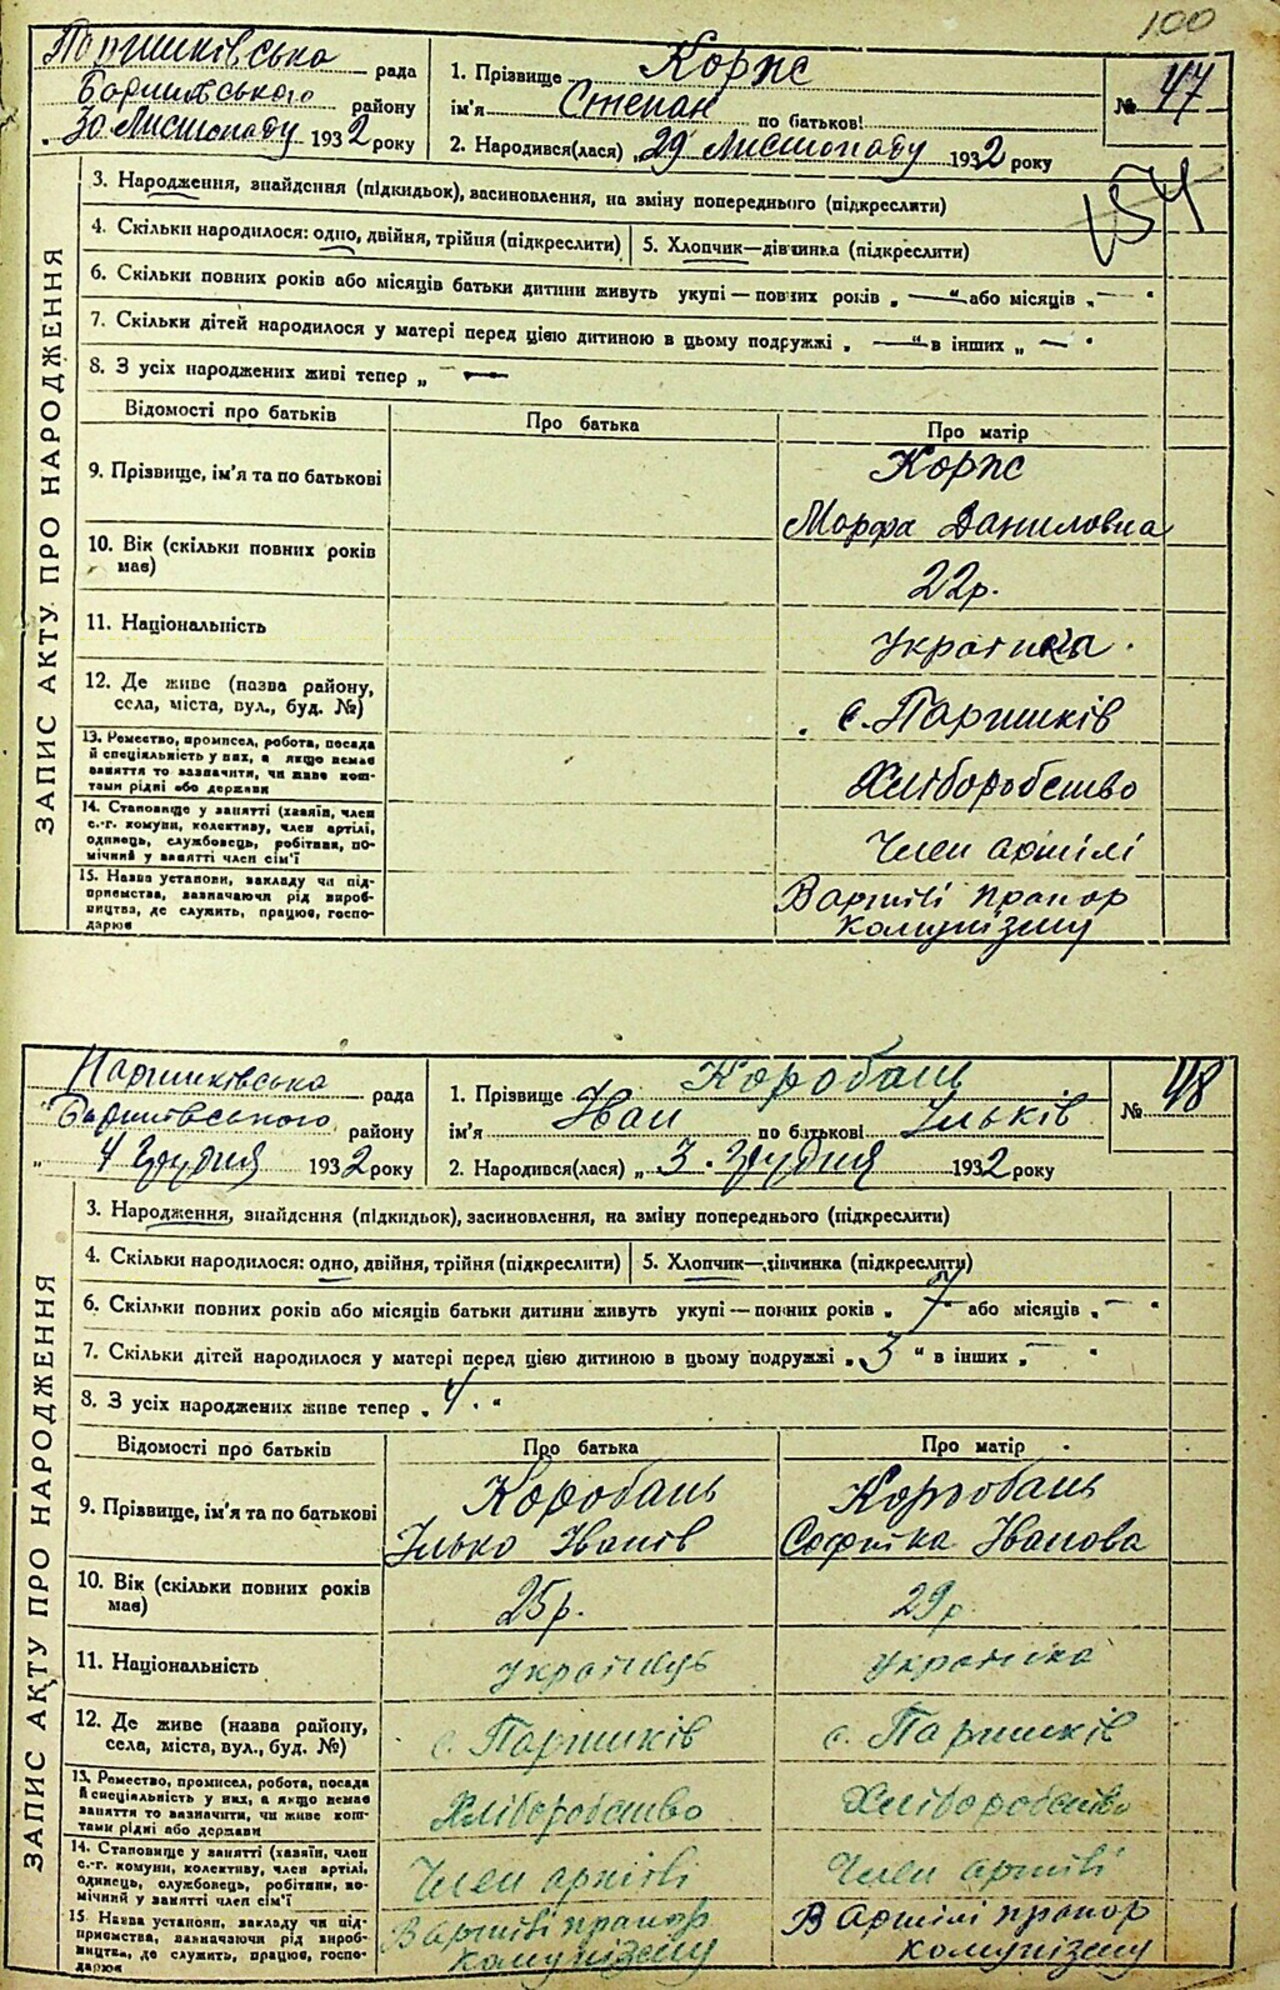 100
Паришківська рада
Баришівського району
„ 30 Листопаду 1932 року
1. Прізвище Корж
ім’я Степан по батькові
2. Народився(лася) „ 29 Листопаду 1932 року
№ 47
154
ЗАПИС АКТУ ПРО НАРОДЖЕННЯ
3. Народження, знайдення (підкидьок), засиновлення, на зміну попереднього (підкреслити)
4. Скільки народилося: одно, двійня, трійня (підкреслити)
5. Хлопчик—дівчинка (підкреслити)
6. Скільки повних років або місяців батьки дитини живуть укупі — повних років „ — “ або місяців „ — “
7. Скільки дітей народилося у матері перед цією дитиною в цьому подружжі „ — “ в інших „ — “
8. З усіх народжених живі тепер „ —
Відомості про батьків
Про батька
Про матір
9. Прізвище, ім’я та по батькові
Корж
Марфа Даниловна
10. Вік (скільки повних років
має)
22р.
11. Національність
Українка
12. Де живе (назва району,
села, міста, вул., буд. №)
с. Паришків
13. Ремество, промисел, робота, посада
й спеціяльність у них, а якщо немає
заняття то зазначити, чи живе кош-
тами рідні або держави
Хліборобство
14. Становище у занятті (хазяїн, член
с.-г. комуни, колективу, член артілі,
одинець, службовець, робітник, по-
мічний у занятті член сім’ї
Член артілі
15. Назва установи, закладу чи під-
приємства, зазначаючи рід вироб-
ництва, де служить, працює, госпо-
дарює
В артілі прапор
комунізму
Паришківська рада
Баришівського району
„ 4 Грудня 1932 року
1. Прізвище Коробань
ім’я Іван по батькові Ільків
2. Народився(лася) „ 3. Грудня 1932 року
№ 48
ЗАПИС АКТУ ПРО НАРОДЖЕННЯ
3. Народження, знайдення (підкидьок), засиновлення, на зміну попереднього (підкреслити)
4. Скільки народилося: одно, двійня, трійня (підкреслити)
5. Хлопчик—дівчинка (підкреслити)
6. Скільки повних років або місяців батьки дитини живуть укупі — повних років „ 7 “ або місяців „ — “
7. Скільки дітей народилося у матері перед цією дитиною в цьому подружжі „ 3 “ в інших „ — “
8. З усіх народжених живе тепер „ 4. “
Відомості про батьків
Про батька
Про матір
9. Прізвище, ім’я та по батькові
Коробань
Ілько Іванів
Коробань
Софійка Іванова
10. Вік (скільки повних років
має)
25р.
29р
11. Національність
Українець
Українка
12. Де живе (назва району,
села, міста, вул., буд. №)
с. Паришків
с. Паришків
13. Ремество, промисел, робота, посада
й спеціяльність у них, а якщо немає
заняття то зазначити, чи живе кош-
тами рідні або держави
Хліборобство
Хліборобство
14. Становище у занятті (хазяїн, член
с.-г. комуни, колективу, член артілі,
одинець, службовець, робітник, по-
мічний у занятті член сім’ї
Член артілі
Член артілі
15. Назва установи, закладу чи під-
приємства, зазначаючи рід вироб-
ництва, де служить, працює, госпо-
дарює
В артілі прапор
комунізму
В Артілі прапор
комунізму